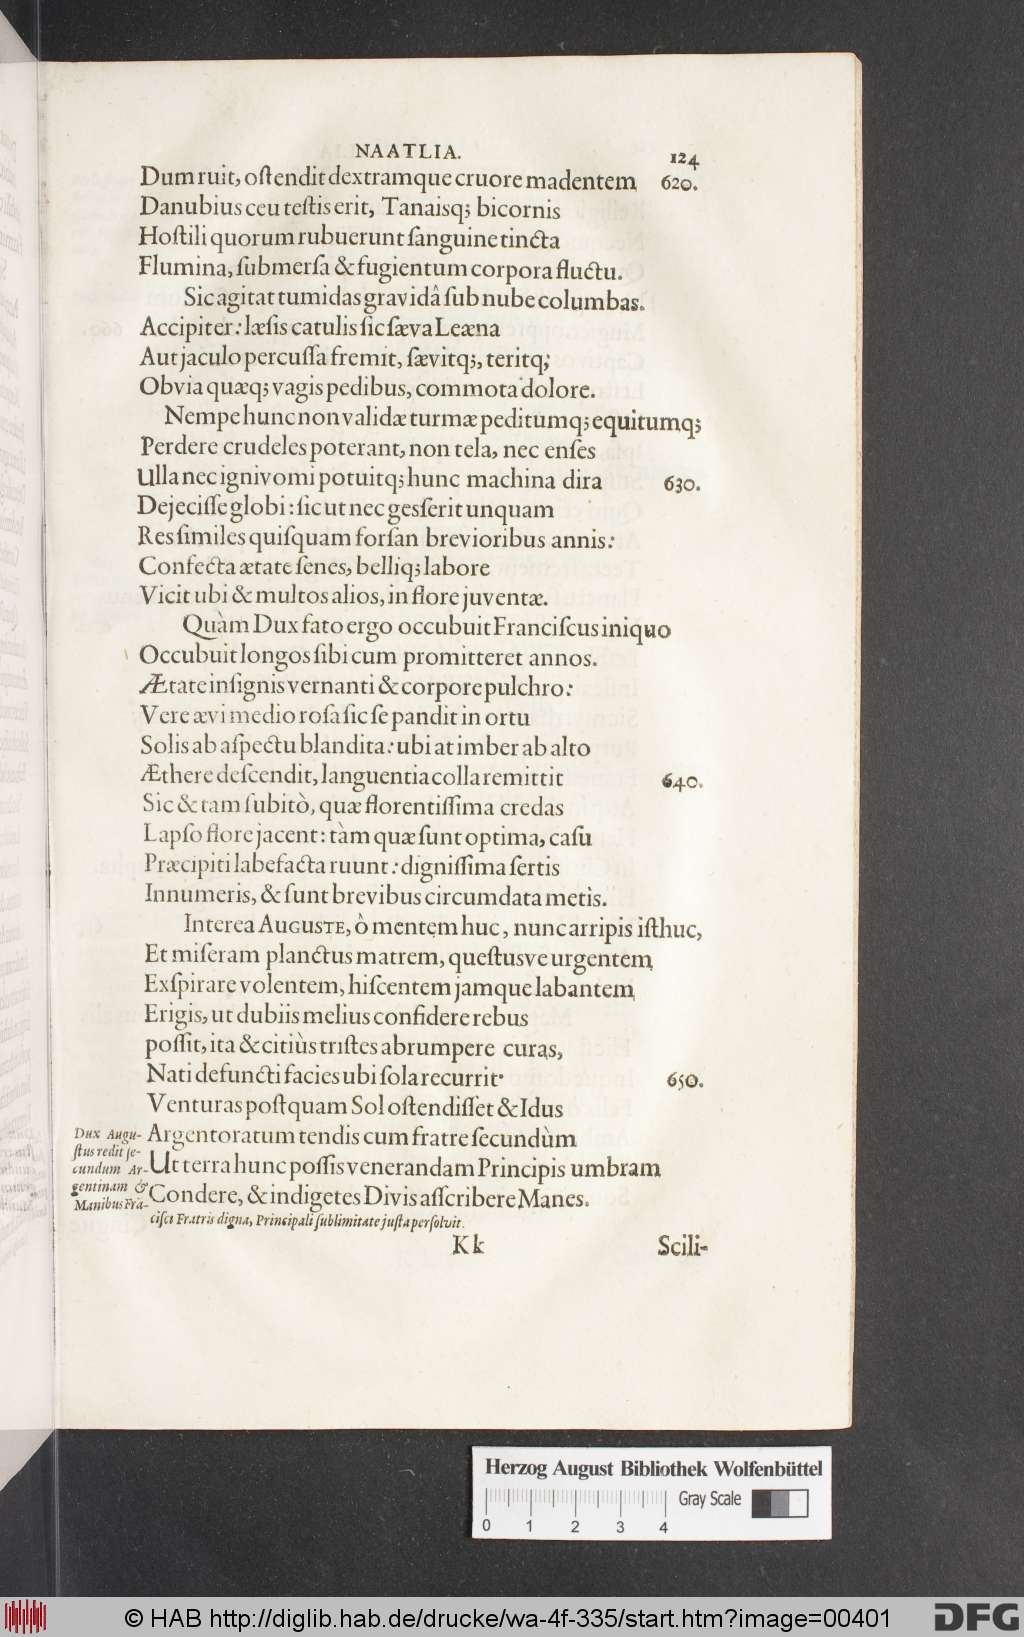 NAATLIA. 124
Dum ruit, oſtendit dextramque cruore madentem 620.
Danubius ceu teſtis erit, Tanaisq; bicornis
Hoſtili quorum rubuerunt ſanguine tincta
Flumina, ſubmerſa & fugientum corpora fluctu.
Sic agitat tumidas gravidâ ſub nube columbas.
Accipiter: læſis catulis ſic ſæva Leæna
Aut jaculo percuſſa fremit, ſævitq;, teritq;
Obvia quæq; vagis pedibus, commota dolore.
Nempe hunc non validæ turmæ peditumq; equitumq;
Perdere crudeles poterant, non tela, nec enſes
Ulla nec ignivomi potuitq; hunc machina dira 630.
Dejeciſſe globi: ſicut nec gesſerit unquam
Res ſimiles quiſquam forſan brevioribus annis:
Confecta ætate ſenes, belliq; labore
Vicit ubi & multos alios, in flore juventæ.
Quàm Dux fato ergo occubuit Franciſcus iniquo
Occubuit longos ſibi cum promitteret annos.
Ætate inſignis vernanti & corpore pulchro:
Vere ævi medio roſa ſic ſe pandit in ortu
Solis ab aſpectu blandita: ubi at imber ab alto
Æthere deſcendit, languentia colla remittit 640.
Sic & tam ſubitò, quæ florentiſſima credas
Lapſo flore jacent: tàm quæ ſunt optima, caſu
Præcipiti labefacta ruunt: digniſſima ſertis
Innumeris, & ſunt brevibus circumdata metìs.
Interea AUGUSTE, ò mentem huc, nunc arripis iſthuc,
Et miſeram planctus matrem, queſtusve urgentem
Exſpirare volentem, hiſcentem jamque labantem
Erigis, ut dubiis melius confidere rebus
poſſit, ita & citiùs triſtes abrumpere curas,
Nati defuncti facies ubi ſola recurrit. 650.
Venturas poſtquam Sol oſtendiſſet & Idus
Argentoratum tendis cum fratre ſecundùm
Ut terra hunc poſſis venerandam Principis umbram
Condere, & indigetes Divis aſſcribere Manes.
Dux Augu-
ſtus redit ſe-
cundum Ar-
gentinam &
Manibus Frā-
ciſci Fratris digna, Principali ſublimitate juſta perſolvit.
Kk Scili-
Herzog August Bibliothek Wolfenbüttel
Gray Scale
0 1 2 3 4
© HAB http://diglib.hab.de/drucke/wa-4f-335/start.htm?image=00401
DFG